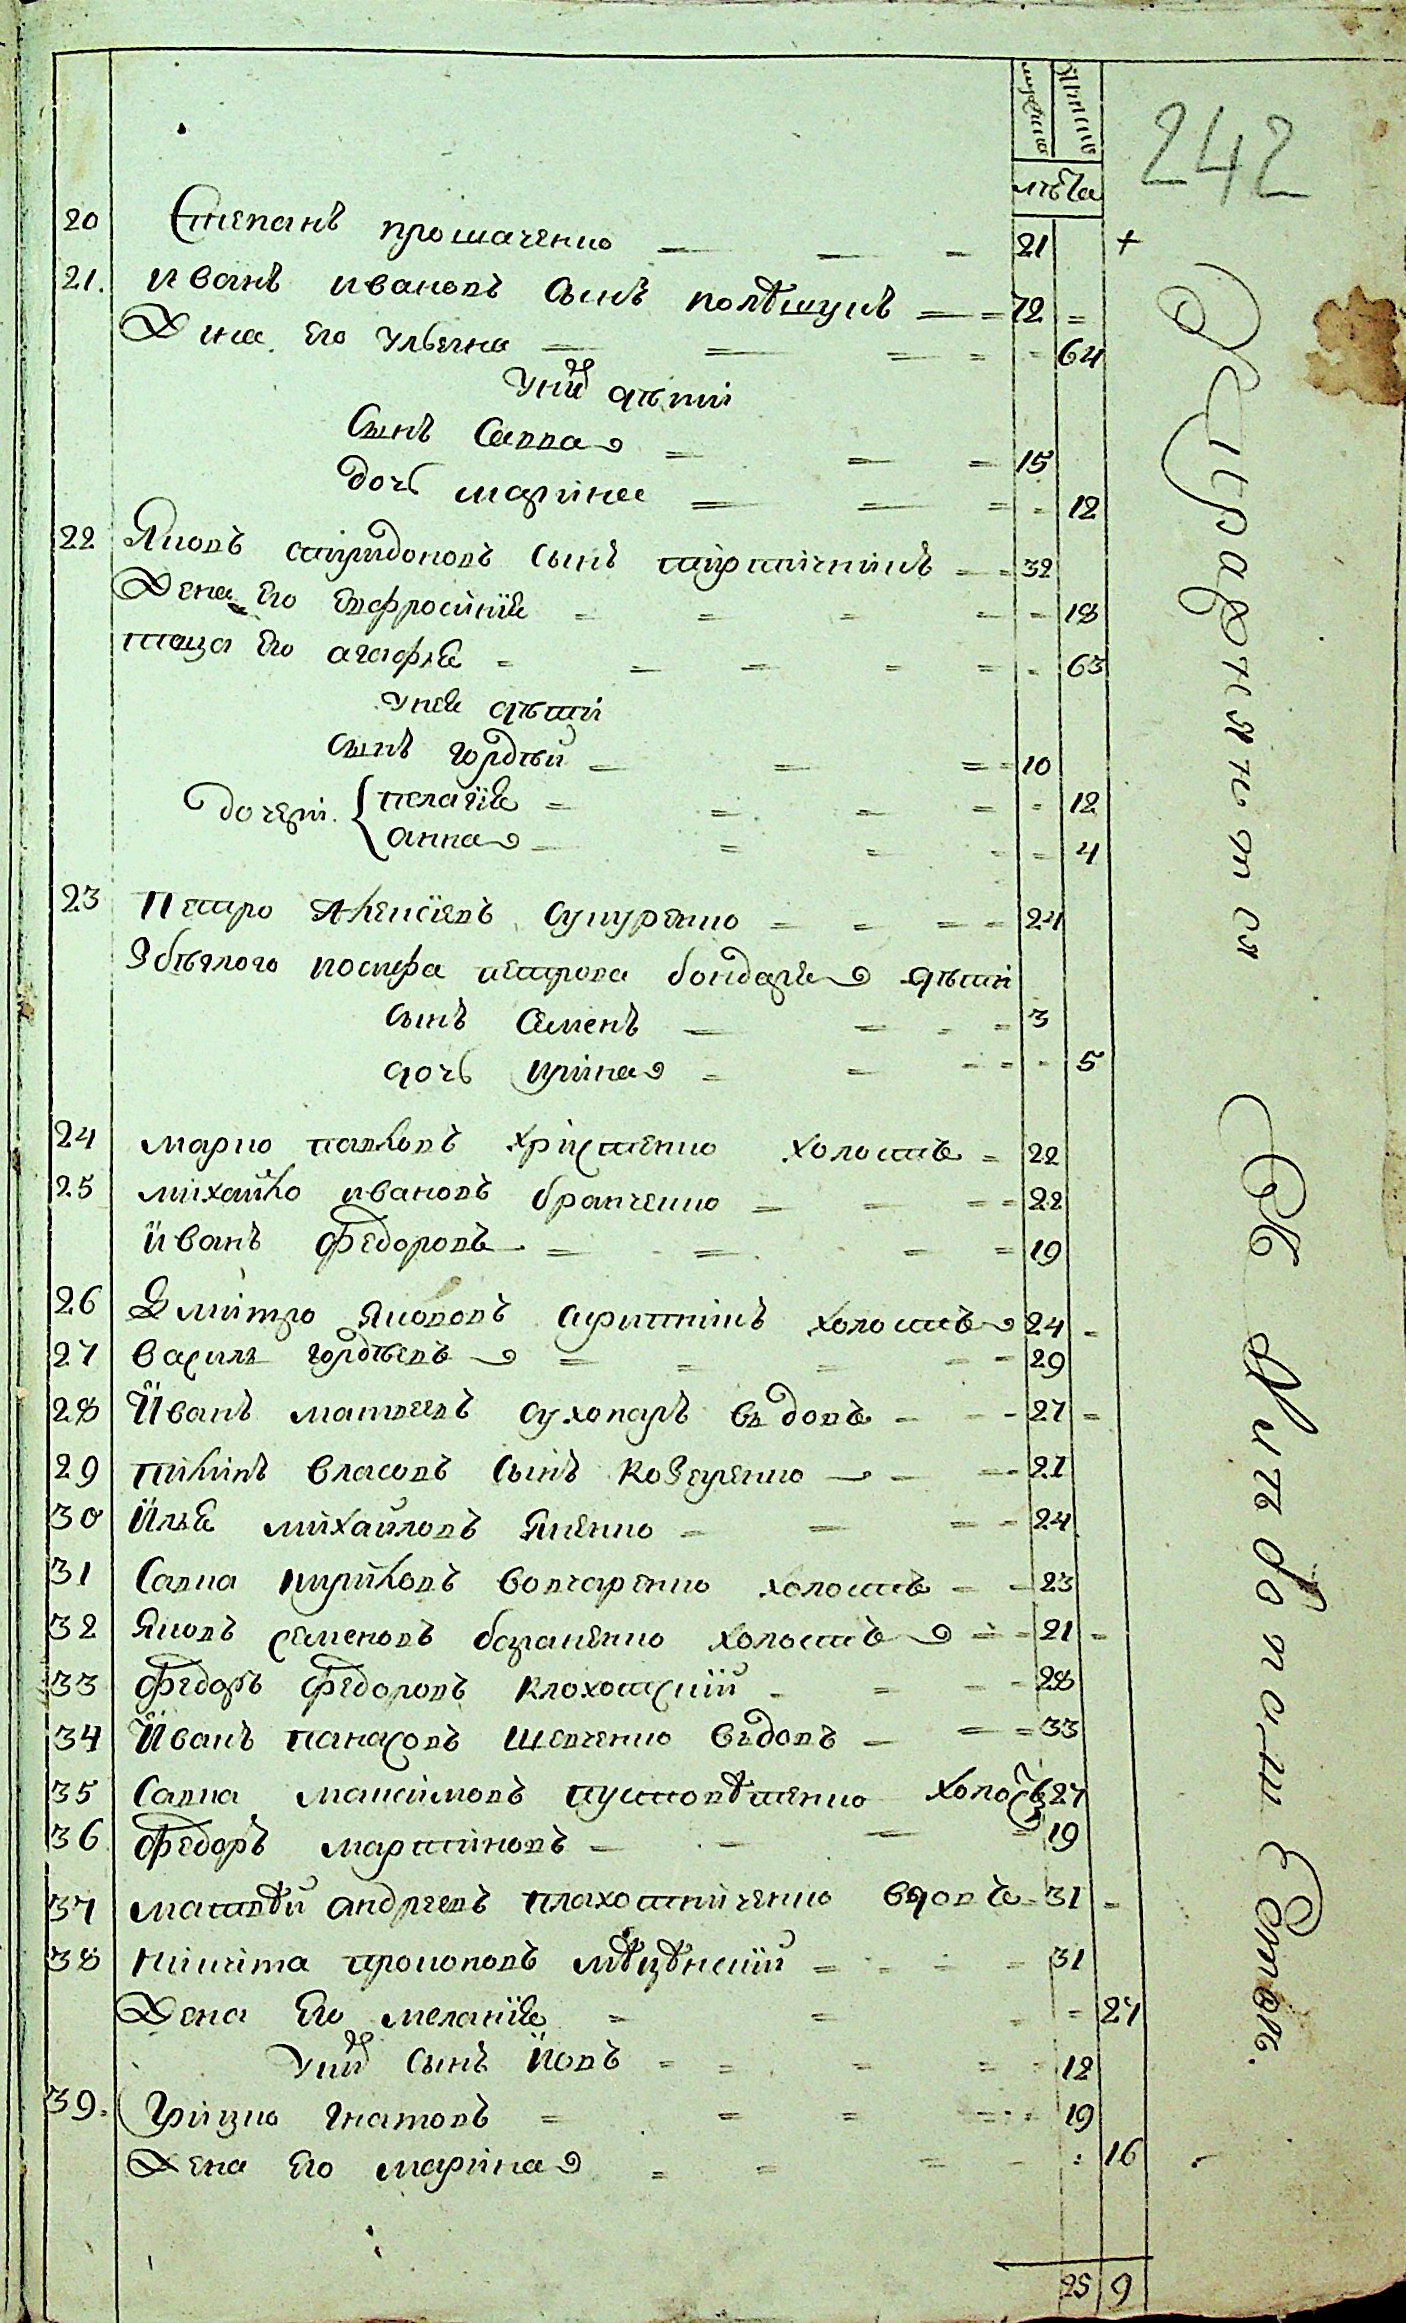 мужеска
женска
лѣта
242
20 Степанъ прошаченко 21 +
21. иванъ ивановъ сынъ полѣщукъ 72
Жена его ульяна 64
у нихъ дѣти
сынъ Савва 15
дочь марина 12
22 Яковъ спиридоновъ сынъ 32
Жена его евфросинїя 18
теща его агафия 63
у нея дѣти
сынъ гордѣй 10
дочери { пелагїя 12
анна 4
23 Петро Алексїевъ сукуренко 24
Збѣглого иосифа петрова бондаря дѣти
сынъ Семенъ 3
дочь ирина 5
24 марко павловъ христенко холостъ 22
25 михайло ивановъ братченко 22
иванъ федоровъ 19
26 Дмитро якововъ холостъ 24
27 василь гордѣевъ 29
28 Иванъ матвеевъ сухопаръ вдовъ 27
29 пилипъ власовъ сынъ козеренко 21
30 Илья михайловъ яненко 24
31 Савка кириловъ вовчаренко холостъ 23
32 Яковъ семеновъ холостъ 21
33 федоръ федоровъ клохотскїй 28
34 Иванъ панасовъ шевченко вдовъ 33
35 Савка максимовъ пустовѣтенко холостъ 27
36 федоръ мартиновъ 19
37 матвѣй андреевъ плахотниченко вдовъ 31
38 никита прокоповъ 31
Жена его меланїя 27
у нихъ сынъ йовъ 12
39. Грицко игнатовъ 19
Жена его марина 16
25 9